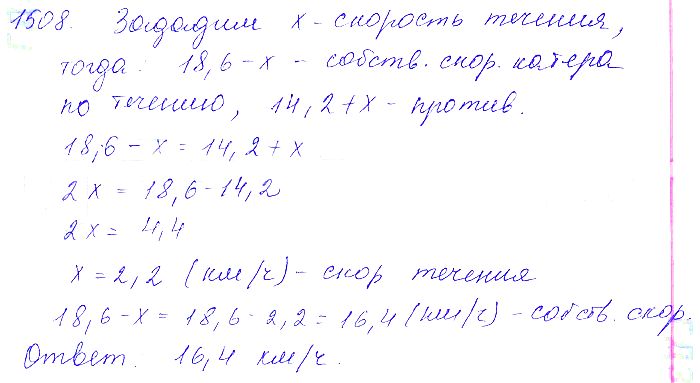 1508. Зададим x - скорость течения,
тогда: 18,6 - x - собств. скор. катера
по течению, 14,2 + x - против.
18,6 - x = 14,2 + x
2x = 18,6 - 14,2
2x = 4,4
x = 2,2 (км/ч) - скор течения
18,6 - x = 18,6 - 2,2 = 16,4 (км/ч) - собств. скор.
Ответ. 16,4 км/ч.